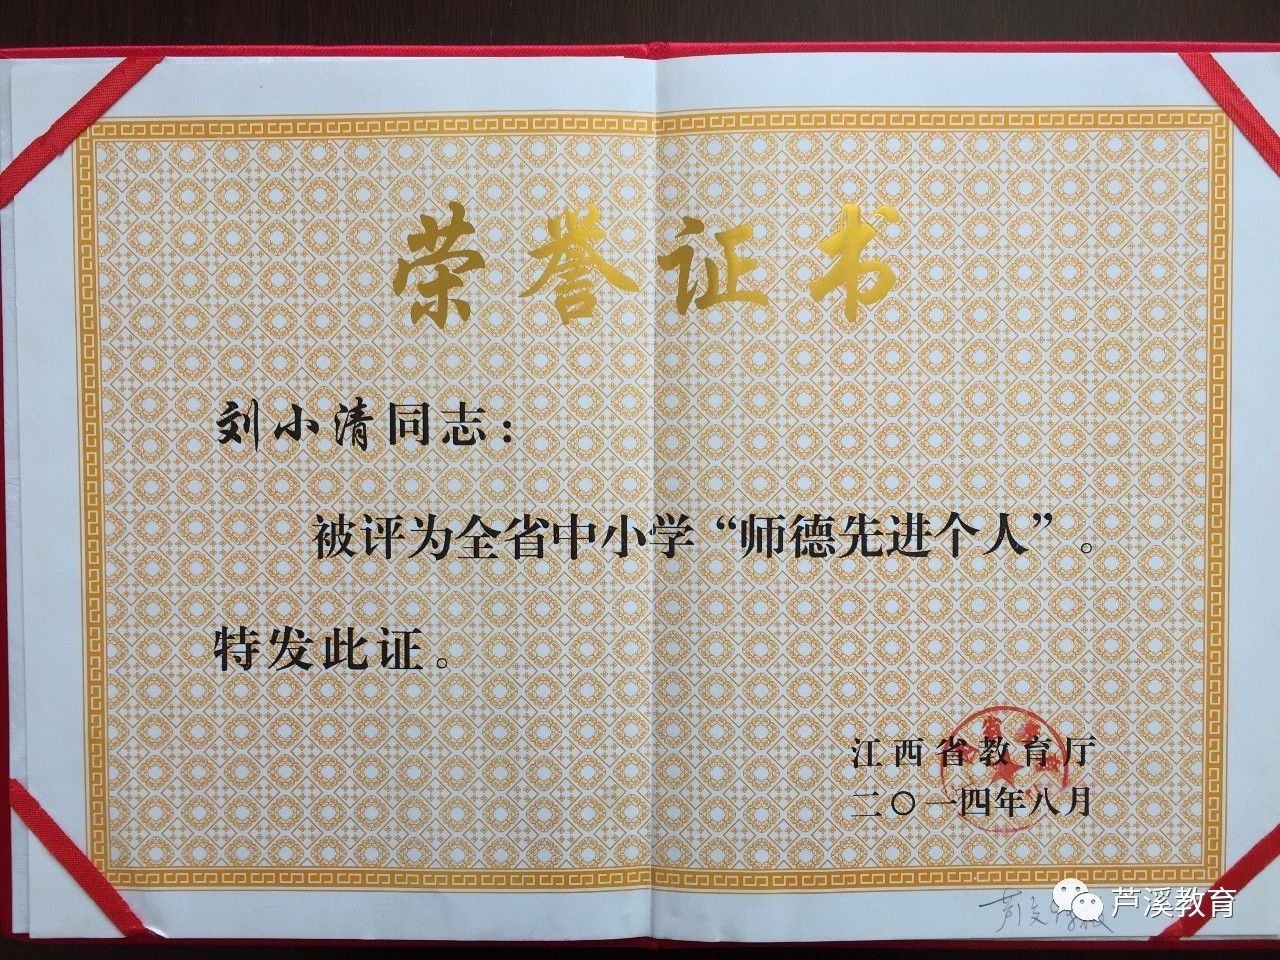 荣誉证书
刘小清同志：
被评为全省中小学“师德先进个人”。
特发此证。
江西省教育厅
二〇一四年八月
芦溪教育